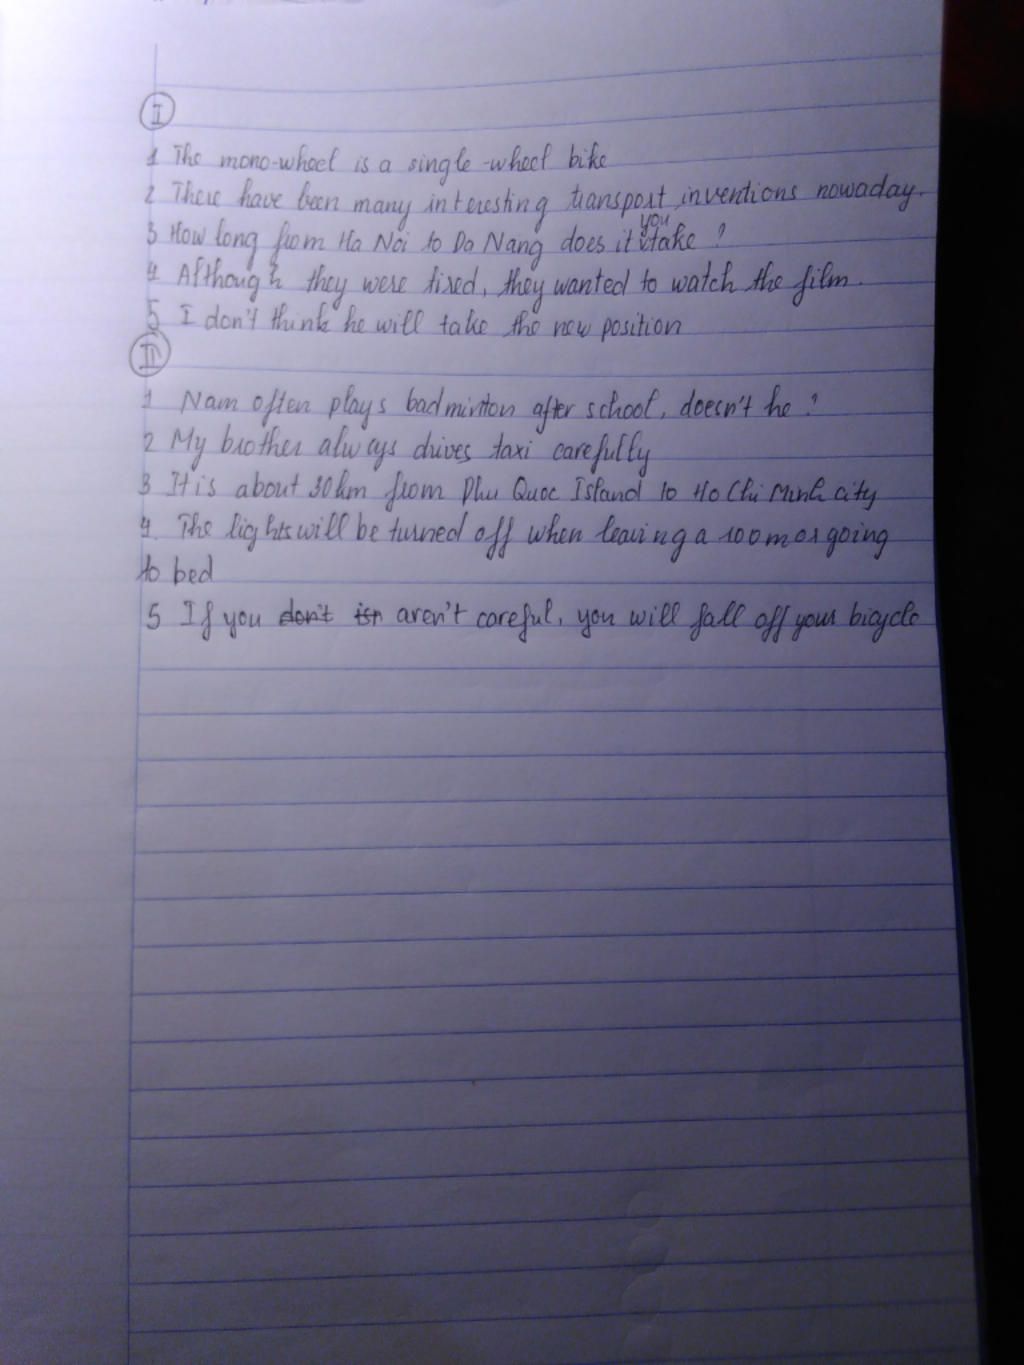 I
1 The mono-wheel is a single-wheel bike
2 There have been many interesting transport inventions nowaday.
you
3 How long from Ha Noi to Da Nang does it take ?
4 Although they were tired, they wanted to watch the film.
5 I don't think he will take the new position
II
1 Nam often plays badminton after school, doesn't he ?
2 My brother always drives taxi carefully
3 It is about 30km from Phu Quoc Island to Ho Chi Minh city
4. The lights will be turned off when leaving a room or going
to bed
5 If you don't isn aren't careful, you will fall off your bicycle